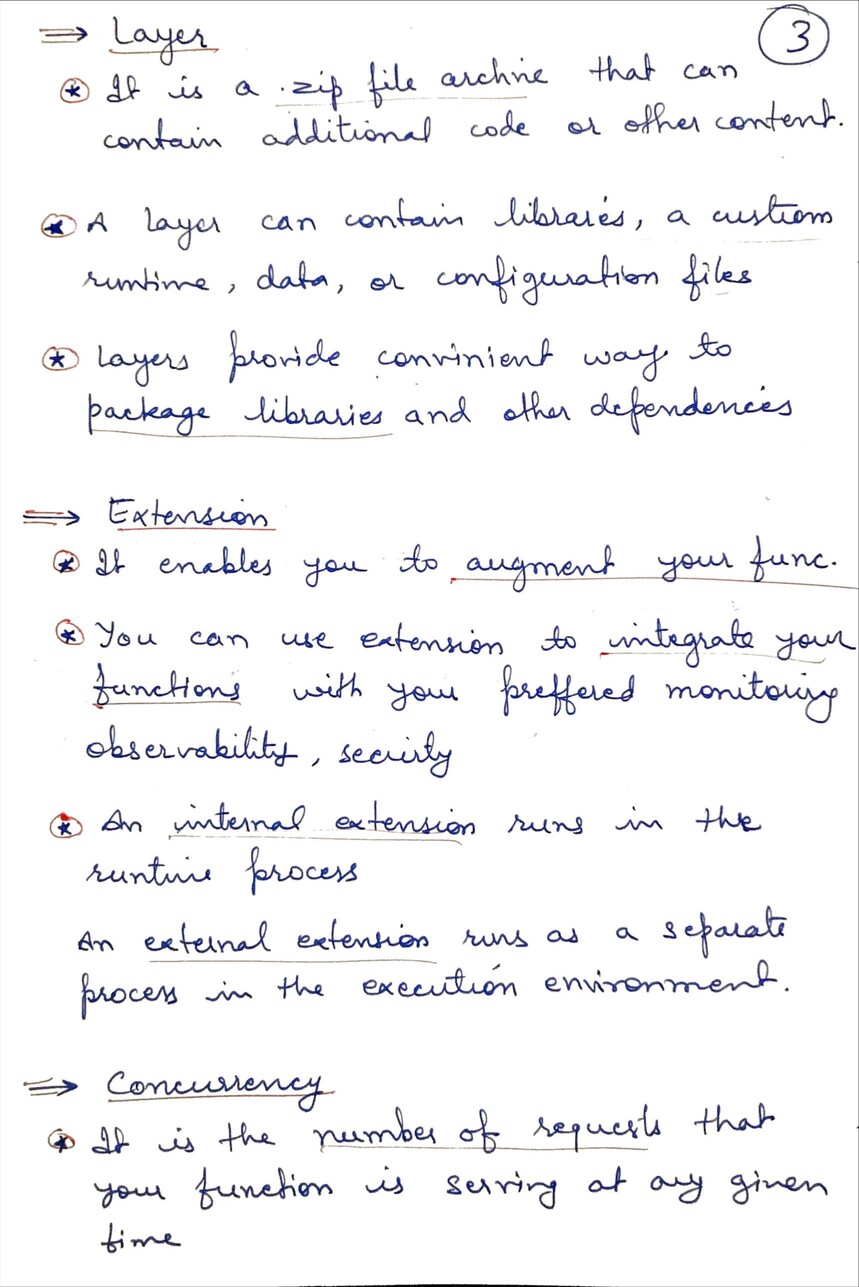 ⇒ Layer
3
⊛ It is a .zip file archive that can
contain additional code or other content.
⊛ A layer can contain libraries, a custiom
runtime, data, or configuration files
⊛ Layers provide convinient way to
package libraries and other dependences
⇒ Extension
⊛ It enables you to augment your func.
⊛ You can use extension to integrate your
functions with your preffered monitoring
observability, security
⊛ An internal extension runs in the
runtime process
An external extension runs as a separate
process in the execution environment.
⇒ Concurrency
⊛ It is the number of requests that
your function is serving at any given
time